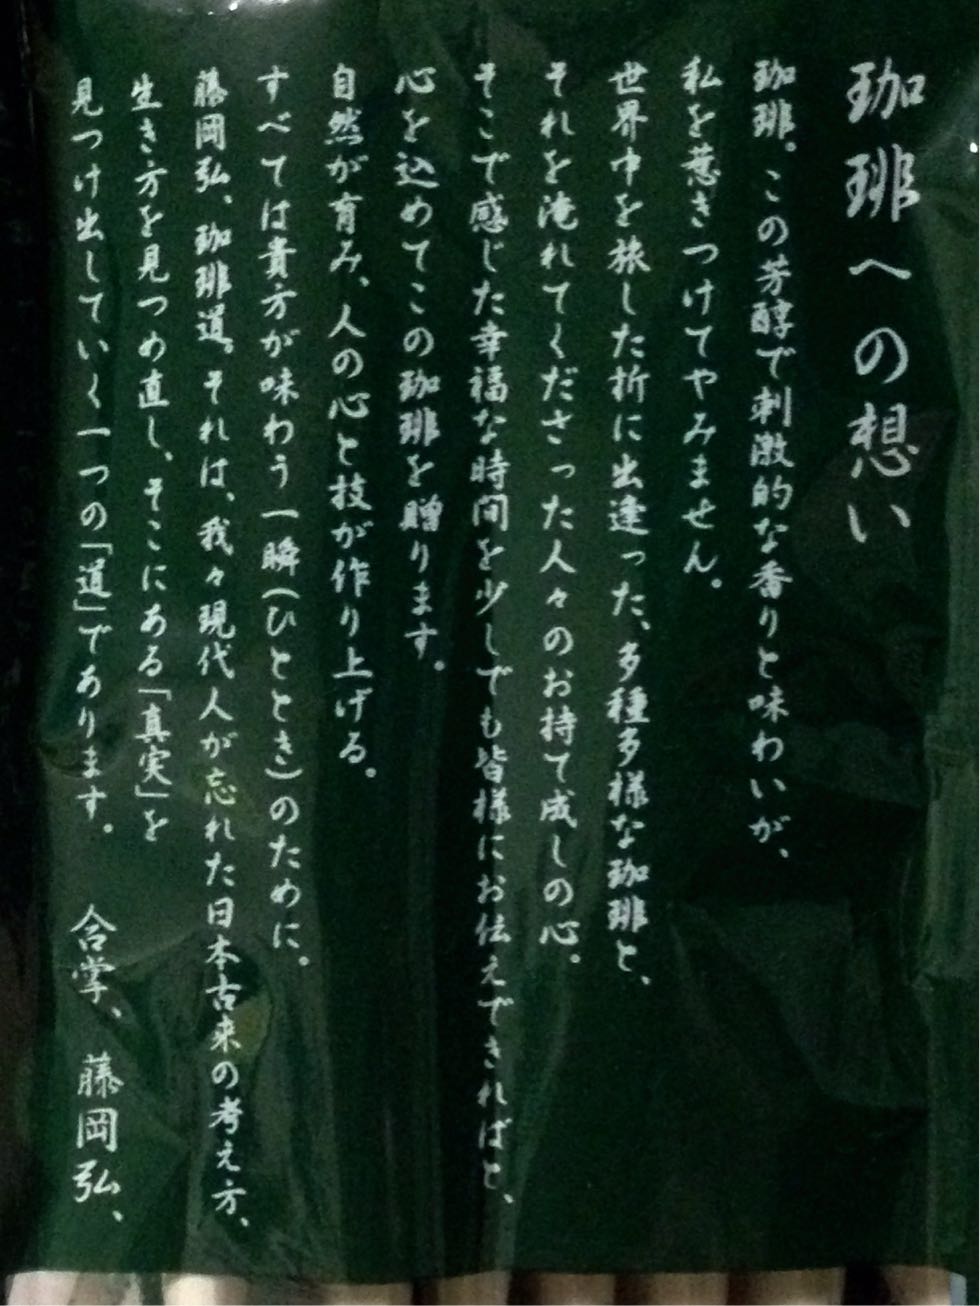 珈琲への想い
珈琲。この芳醇で刺激的な香りと味わいが、
私を惹きつけてやみません。
世界中を旅した折に出逢った、多種多様な珈琲と、
それを淹れてくださった人々のお持て成しの心。
そこで感じた幸福な時間を少しでも皆様にお伝えできればと、
心を込めてこの珈琲を贈ります。
自然が育み、人の心と技が作り上げる。
すべては貴方が味わう一瞬(ひととき)のために。
藤岡弘、珈琲道。それは、我々現代人が忘れた日本古来の考え方、
生き方を見つめ直し、そこにある「真実」を
見つけ出していく一つの「道」であります。 合掌、 藤岡弘、